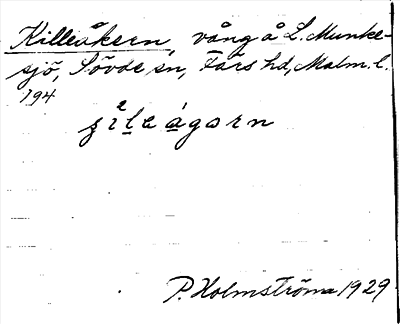 Killeåkern, vång å L. Munke-
sjö, Sövde sn, Färs hd, Malm. l.
194
P. Holmström 1929